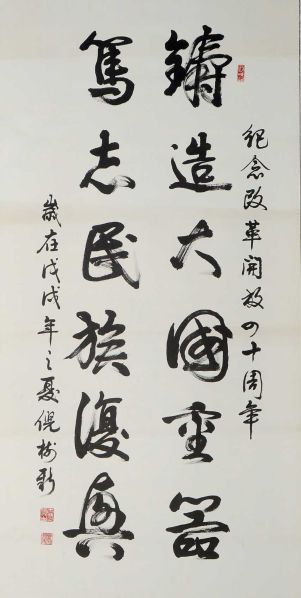 紀念改革開放四十周年
鑄造大國重器
篤志民族復興
歲在戊戌年之夏倪树新